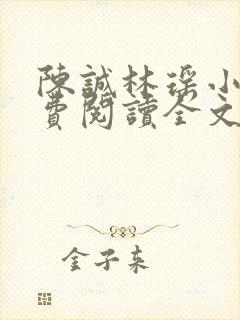 陳誠林瑤小
費閱讀全文
金子来